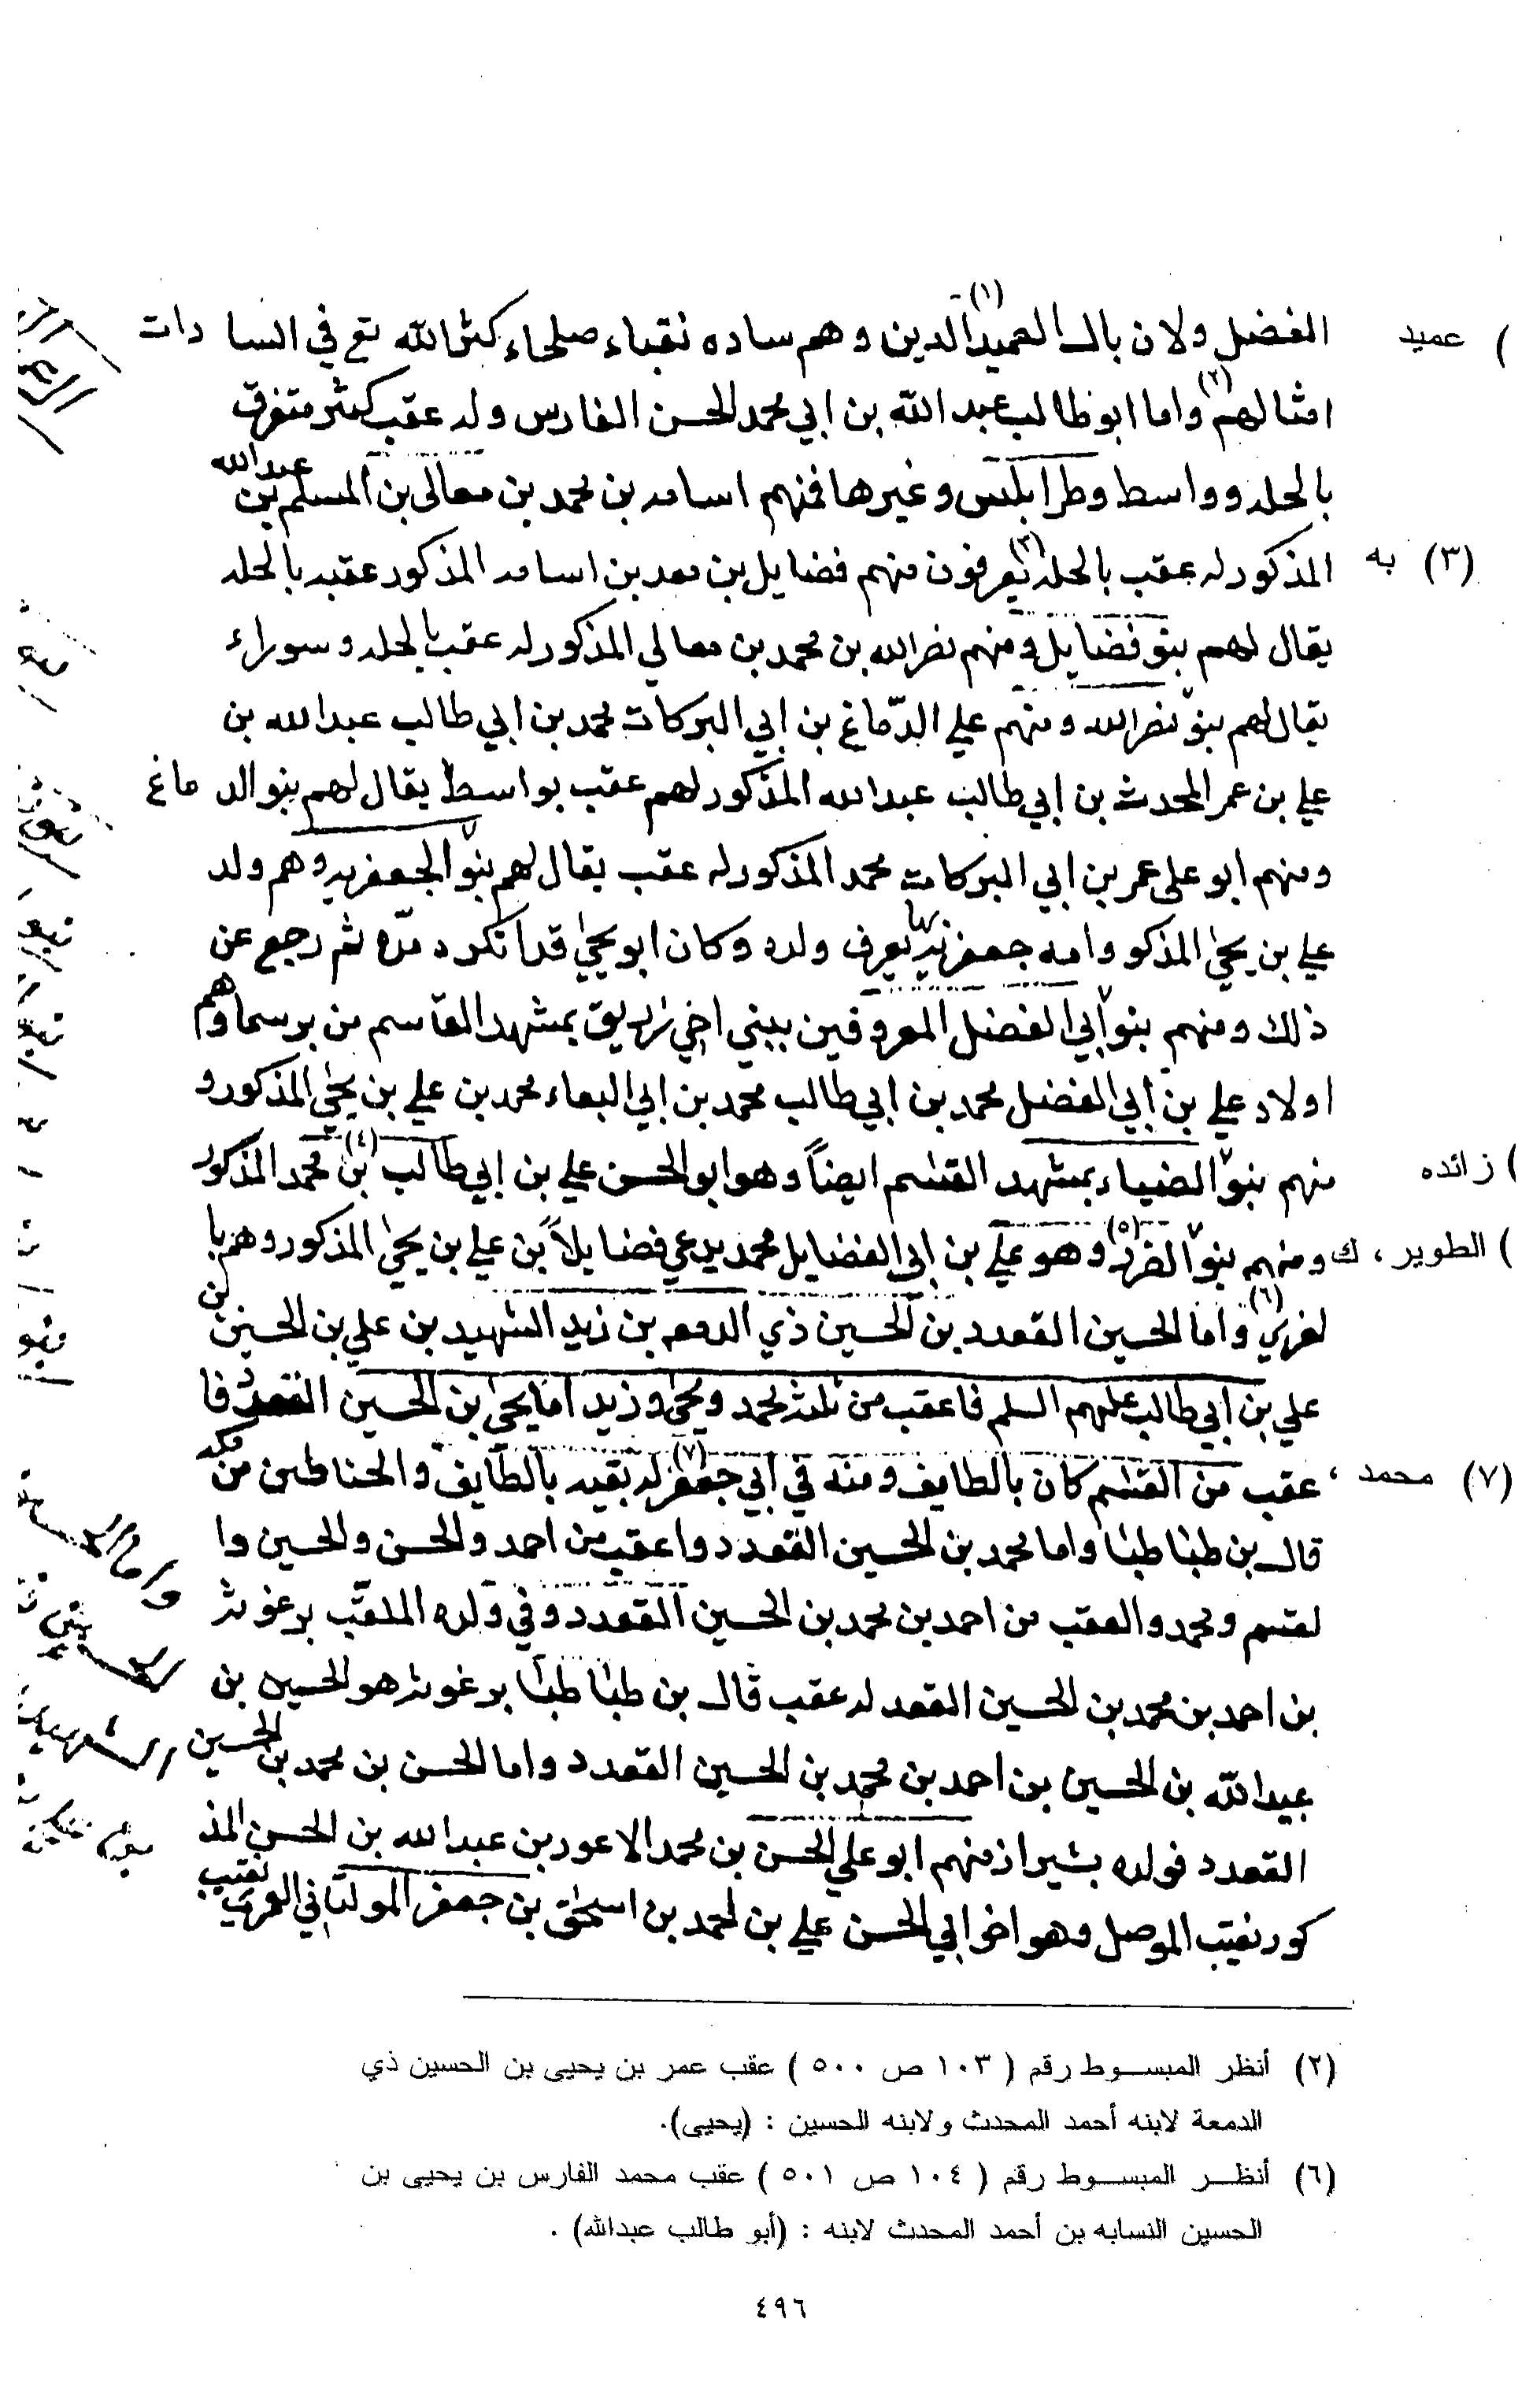 الفضل ولان بال العميد(١) الدين وهم ساده نقباء صلحاء كثر الله تع في السا دات
) عميد
امثالهم(٢) واما ابو طالب عبد الله بن ابي محمد الحسن الفارس وله عقب كثير متفرق
بالحله وواسط وطرابلس وغيرها فمنهم اسامه بن محمد بن معالى بن المسلم بن عبدالله
المذكور له عقب بالحله(٣) يعرفون منهم فضايل بن معد بن اسامه المذكور عقبه بالحله
(٣) به
يقال لهم بنو فضايل ومنهم نصر الله بن محمد بن معالي المذكور له عقب بالحله وسوراء
يقال لهم بنو نصر الله ومنهم علي الدماغ بن ابي البركات محمد بن ابي طالب عبد الله بن
علي بن عمر المحدث بن ابي طالب عبد الله المذكور لهم عقب بواسط يقال لهم بنو الد ماغ
ومنهم ابو على عمر بن ابي البركات محمد المذكور له عقب يقال لهم بنو الجعفريه وهم ولد
علي بن يحيى المذكو وامه جعفريه بها يعرف ولده وكان ابو يحيى قد انكره مدّه ثم رجع عن
ذلك ومنهم بنو ابي الفضل المعروفين ببني اخي زريق بمشهد القاسم من برسما وهم
اولاد علي بن ابي الفضل محمد بن ابي طالب محمد بن ابي البهاء محمد بن علي بن يحيى المذكور و
منهم بنو الضياء بمشهد القسم ايضاً وهو ابو الحسن علي بن ابي طالب بن(٤) محمد المذكور
) زائده
ومنهم بنو الفرد(٥) وهو علي بن ابي الفضايل محمد يدعي فضايلاً بن علي بن يحيى المذكور وهم با
) الطوير ، ك
لغري(٦) واما الحسين القعدد بن الحسين ذي الدمعه بن زيد الشهيد بن علي بن الحسين بن
علي بن ابي طالب عليهم السلم فاعقب من ثلثه محمد ويحيى وزيد اما يحيى بن الحسين القعدد فا
عقب من القسم كان بالطايف ومنه في ابي جعفر(٧) له بقيه بالطايف والحناطين من مكه
(٧) محمد ،
قال بن طباطبا واما محمد بن الحسين القعدد واعقب من احمد والحسن والحسين وا
لقسم ومحمد والعقب من احمد بن محمد بن الحسين القعدد وفي ولده الملقب برغوثه
بن احمد بن محمد بن الحسين القعدد له عقب قال بن طباطبا برغوثه هو الحسين بن
عبيد الله بن الحسين بن احمد بن محمد بن الحسين القعدد واما الحسن بن محمد بن الحسين
القعدد فولده بشيراز منهم ابو علي الحسن بن محمد الاعور بن عبد الله بن الحسن المذ
كور نقيب الموصل وهو اخو ابي الحسن علي بن احمد بن اسحق بن جعفر المولتاني العمري نقيب
(٢) أنظر المبسوط رقم ( ١٠٣ ص ٥٠٠ ) عقب عمر بن يحيى بن الحسين ذي
الدمعة لابنه أحمد المحدث ولابنه الحسين : (يحيى).
(٦) أنظر المبسوط رقم ( ١٠٤ ص ٥٠١ ) عقب محمد الفارس بن يحيى بن
الحسين النسابه بن أحمد المحدث لابنه : (أبو طالب عبدالله) .
٤٩٦